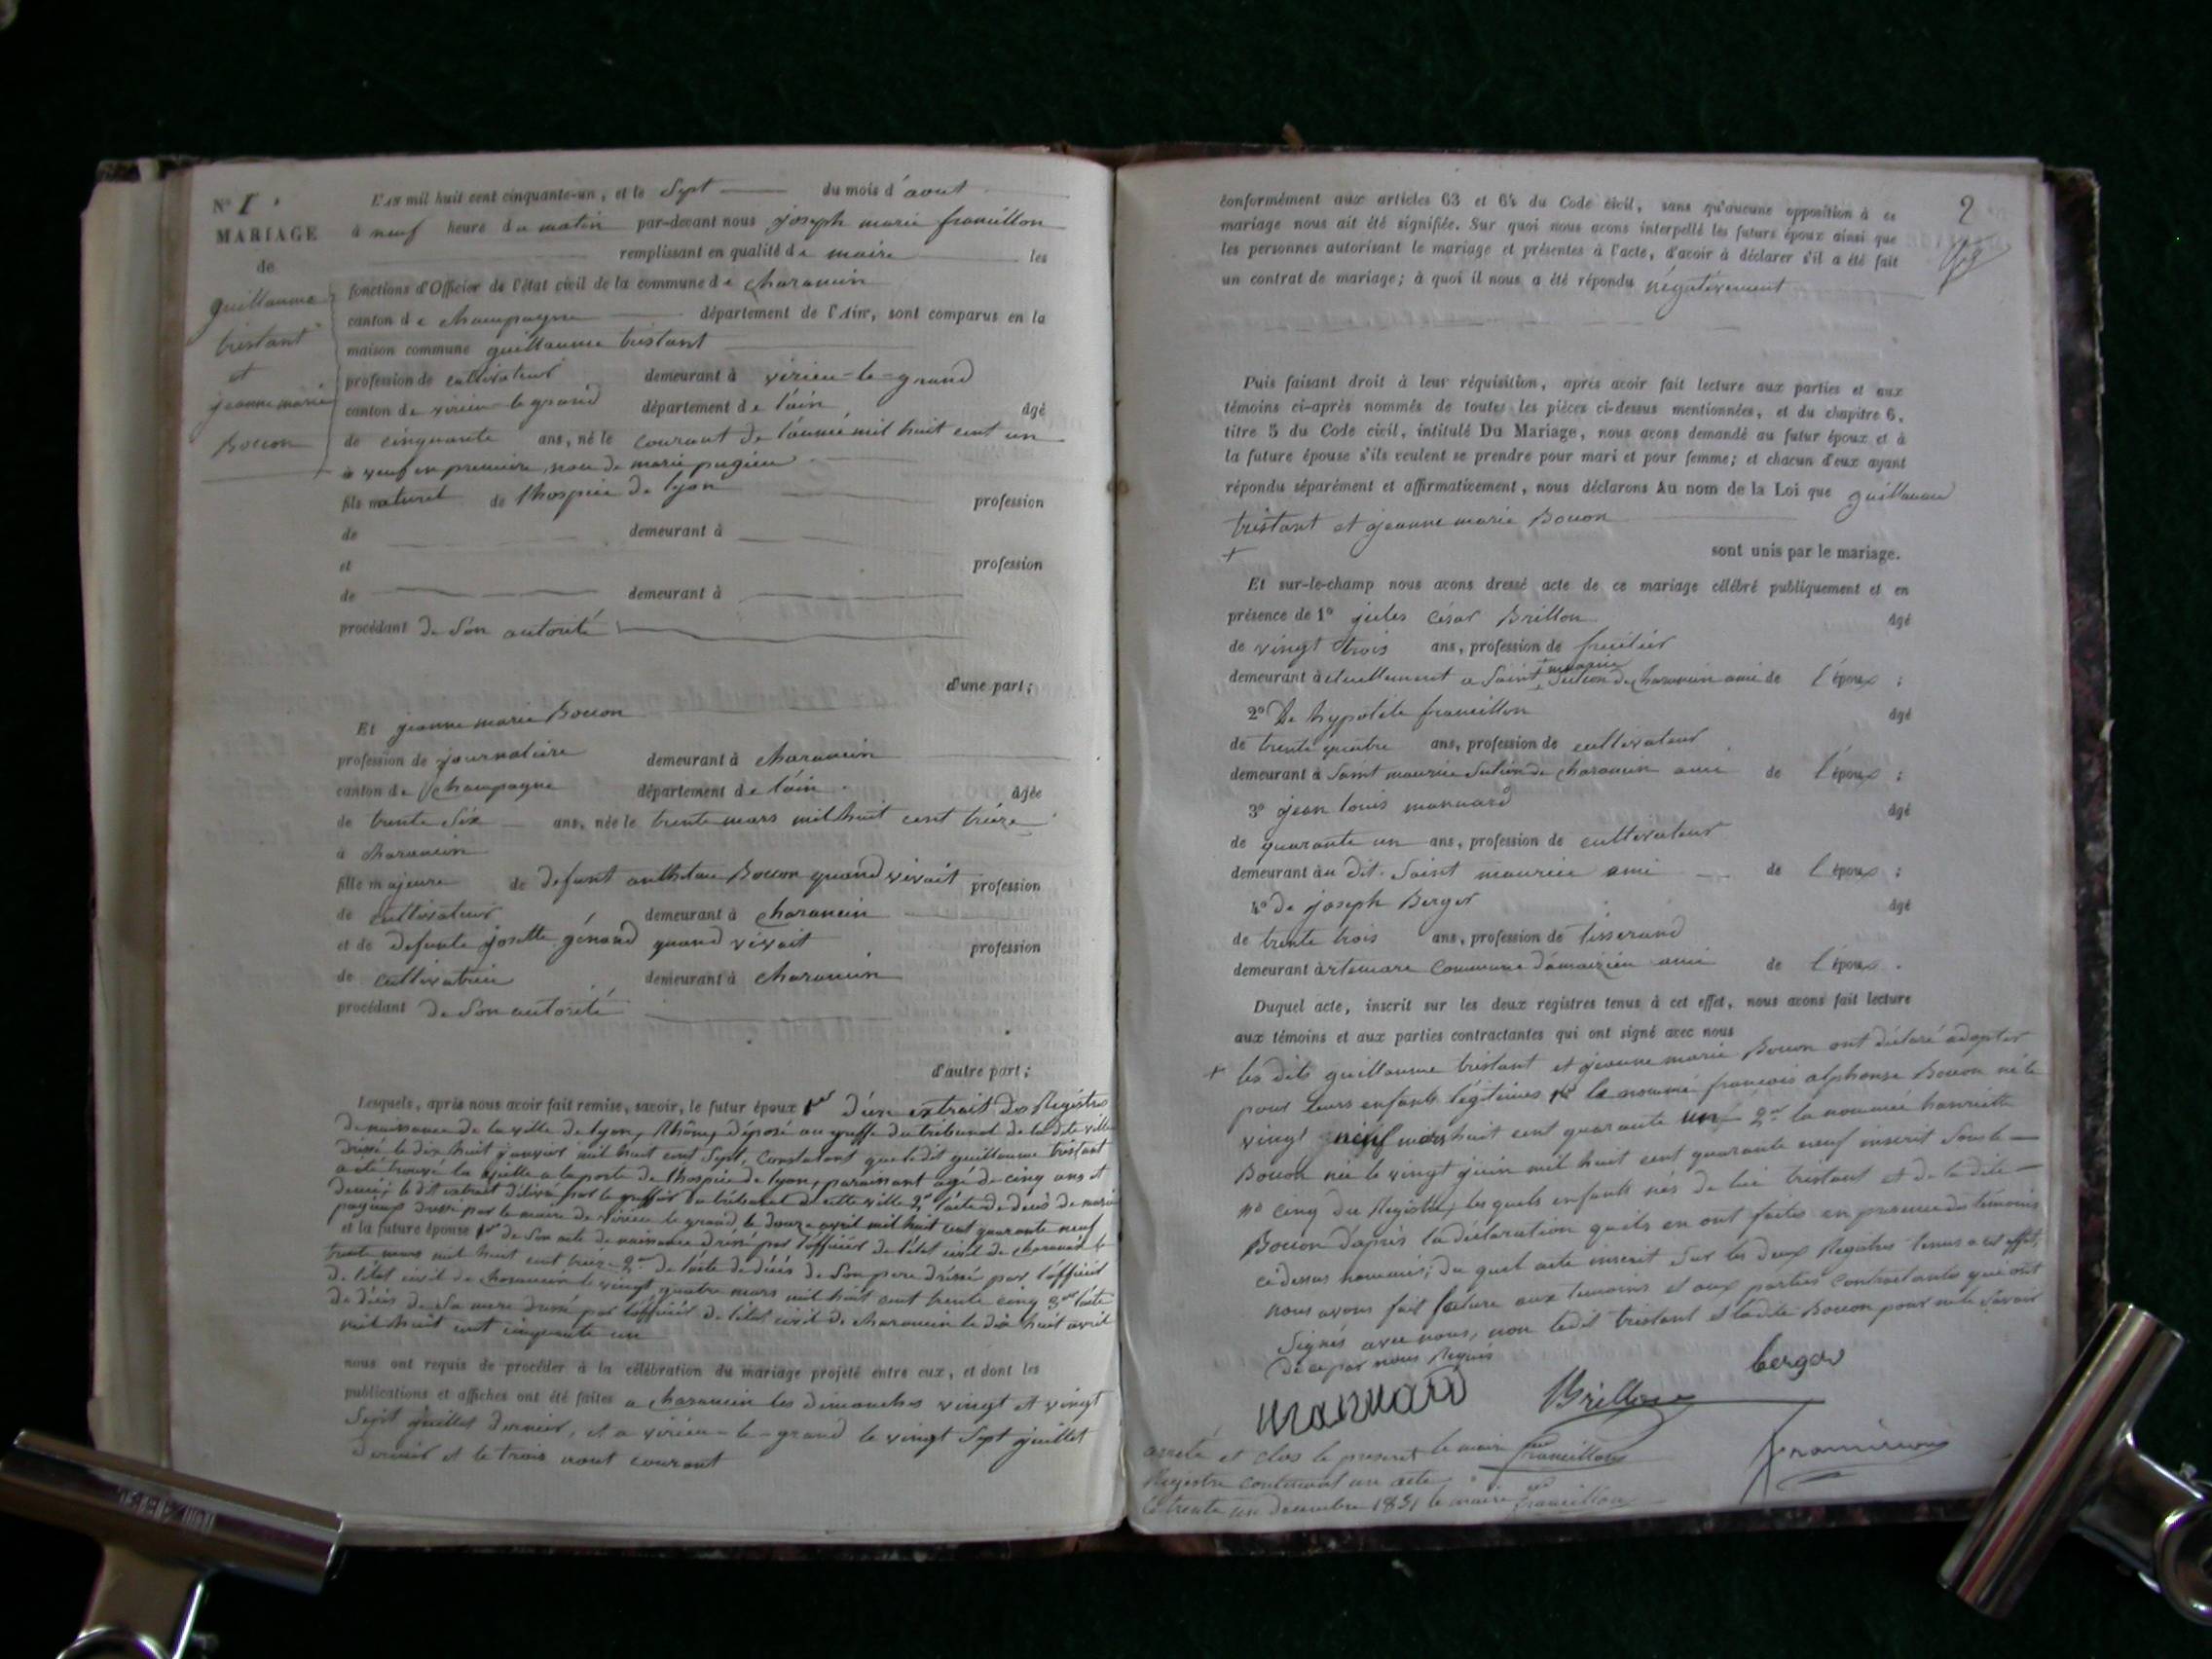 N° 1.
MARIAGE
de
guillaume
tristant
et
jeanne marie
Bouon
L'AN mil huit cent cinquante-un, et le sept du mois d'aout
à neuf heure du matin par-devant nous joseph marie francillon
remplissant en qualité de maire les
fonctions d'Officier de l'état civil de la commune de charancin
canton de champagne département de l'Ain, sont comparus en la
maison commune guillaume tristant
profession de cultivateur demeurant à virieu-le-grand
canton de virieu le grand département de l'ain âgé
de cinquante ans, né le courant de l'année mil huit cent un
à veuf en première noce de marie pugieu
fils naturel de l'hospice de lyon profession
de demeurant à
et profession
de demeurant à
procédant de son autorité
d'une part;
Et jeanne marie Bouon
profession de journalière demeurant à charancin
canton de champagne département de l'ain. âgée
de trente six ans, née le trente mars mil huit cent treize
à charancin
fille majeure de defunt Bouon quand vivait profession
de cultivateur demeurant à charancin
et de defunte josette génand quand vivait profession
de cultivatrice demeurant à charancin
procédant de son autorité
d'autre part;
Lesquels, après nous avoir fait remise, savoir, le futur époux 1er d'un extrait des Régistres
de naissance de la ville de lyon, Rhône, déposé au greffe du tribunal de la dite ville
dressé le dix huit janvier mil huit cent sept, constatant que le dit guillaume tristant
a été trouvé la veille a la porte de l'hospice de lyon, paraissant agé de cinq ans et
demi; le dit extrait délivré par le greffier du tribunal de cette ville 2e l'acte de decès de marie
pugieux dressé par le maire de virieu le grand, le douze avril mil huit cent quarante neuf
et la future épouse 1er de son acte de naissance dressé par l'officier de l'état civil de charancin le
trente mars mil huit cent treize 2e de l'acte de décès de son pere dressé par l'officier
de l'état civil de charancin le vingt quatre mars mil huit cent trente cinq 3e l'acte
de décès de sa mere dressé par l'officier de l'état civil de charancin le dix huit avril
mil huit cent cinquante un
nous ont requis de procéder à la célébration du mariage projeté entre eux, et dont les
publications et affiches ont été faites a charancin les dimanches vingt et vingt
sept juillet dernier, et a virieu-le-grand le vingt sept juillet
dernier et le trois aout courant
2
conformément aux articles 63 et 64 du Code civil, sans qu'aucune opposition à ce
mariage nous ait été signifiée. Sur quoi nous avons interpellé les futurs époux ainsi que
les personnes autorisant le mariage et présentes à l'acte, d'avoir à déclarer s'il a été fait
un contrat de mariage; à quoi il nous a été répondu négativement
Puis faisant droit à leur réquisition, après avoir fait lecture aux parties et aux
témoins ci-après nommés de toutes les pièces ci-dessus mentionnées, et du chapitre 6,
titre 5 du Code civil, intitulé Du Mariage, nous avons demandé au futur époux et à
la future épouse s'ils veulent se prendre pour mari et pour femme; et chacun d'eux ayant
répondu séparément et affirmativement, nous déclarons Au nom de la Loi que guillaume
tristant et jeanne marie Bouon
+ sont unis par le mariage.
Et sur-le-champ nous avons dressé acte de ce mariage célébré publiquement et en
présence de 1° jules césar Brillon âgé
de vingt trois ans, profession de fruitier
demeurant actuellement a Saint maurice section de charancin ami de l'époux;
2° De hypolite francillon âgé
de trente quatre ans, profession de cultivateur
demeurant à Saint maurice section de charancin ami de l'époux;
3° jean louis mannard âgé
de quarante un ans, profession de cultivateur
demeurant au dit Saint maurice ami de l'époux;
4° de joseph Berger âgé
de trente trois ans, profession de tisserand
demeurant à artemare commune d'ameizieu ami de l'époux.
Duquel acte, inscrit sur les deux registres tenus à cet effet, nous avons fait lecture
aux témoins et aux parties contractantes qui ont signé avec nous
+ les dits guillaume tristant et jeanne marie Bouon ont déclaré adopter
pour leurs enfants légitimes 1° le nommé francois alphonse Bouon né le
vingt neuf mars huit cent quarante un 2e la nommée henriette
Bouon née le vingt juin mil huit cent quarante neuf inscrit sous le
n° cinq du Régistre, les quels enfants nés de lui tristant et de la dite
Bouon d'après la déclaration quils en ont faites en presence des témoins
ci dessus nommés; du quel acte inscrit sur les deux Régistres tenus a cet effet,
nous avons fait lecture aux temoins et aux parties contractants qui ont
signés avec nous, non ledit tristant et ladite Bouon pour ne le savoir
de ce par nous Requis
mannard Brillon berger
le maire francillon francillon
arrété et clos le present
Régistre contenant un acte
le trente un decembre 1851 le maire francillon